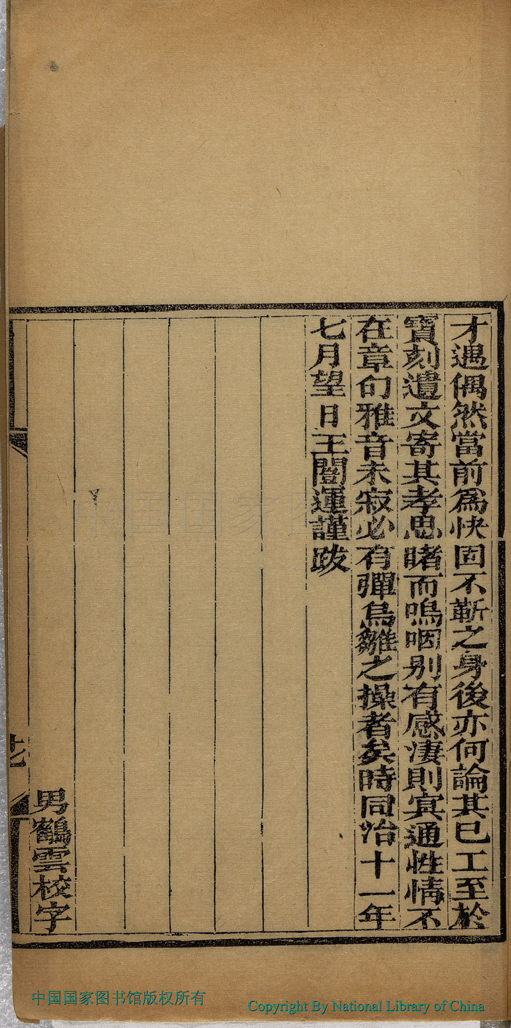 才遇偶然當前爲快固不蘄之身後亦何論其已工至於
寶刻遺文寄其孝思睹而嗚咽别有感淒則㝠通性情不
在章句雅音未寂必有彈烏雛之操者矣時同治十一年
七月望日王闓運謹跋
男鶴雲校字
中国国家图书馆版权所有
Copyright By National Library of China